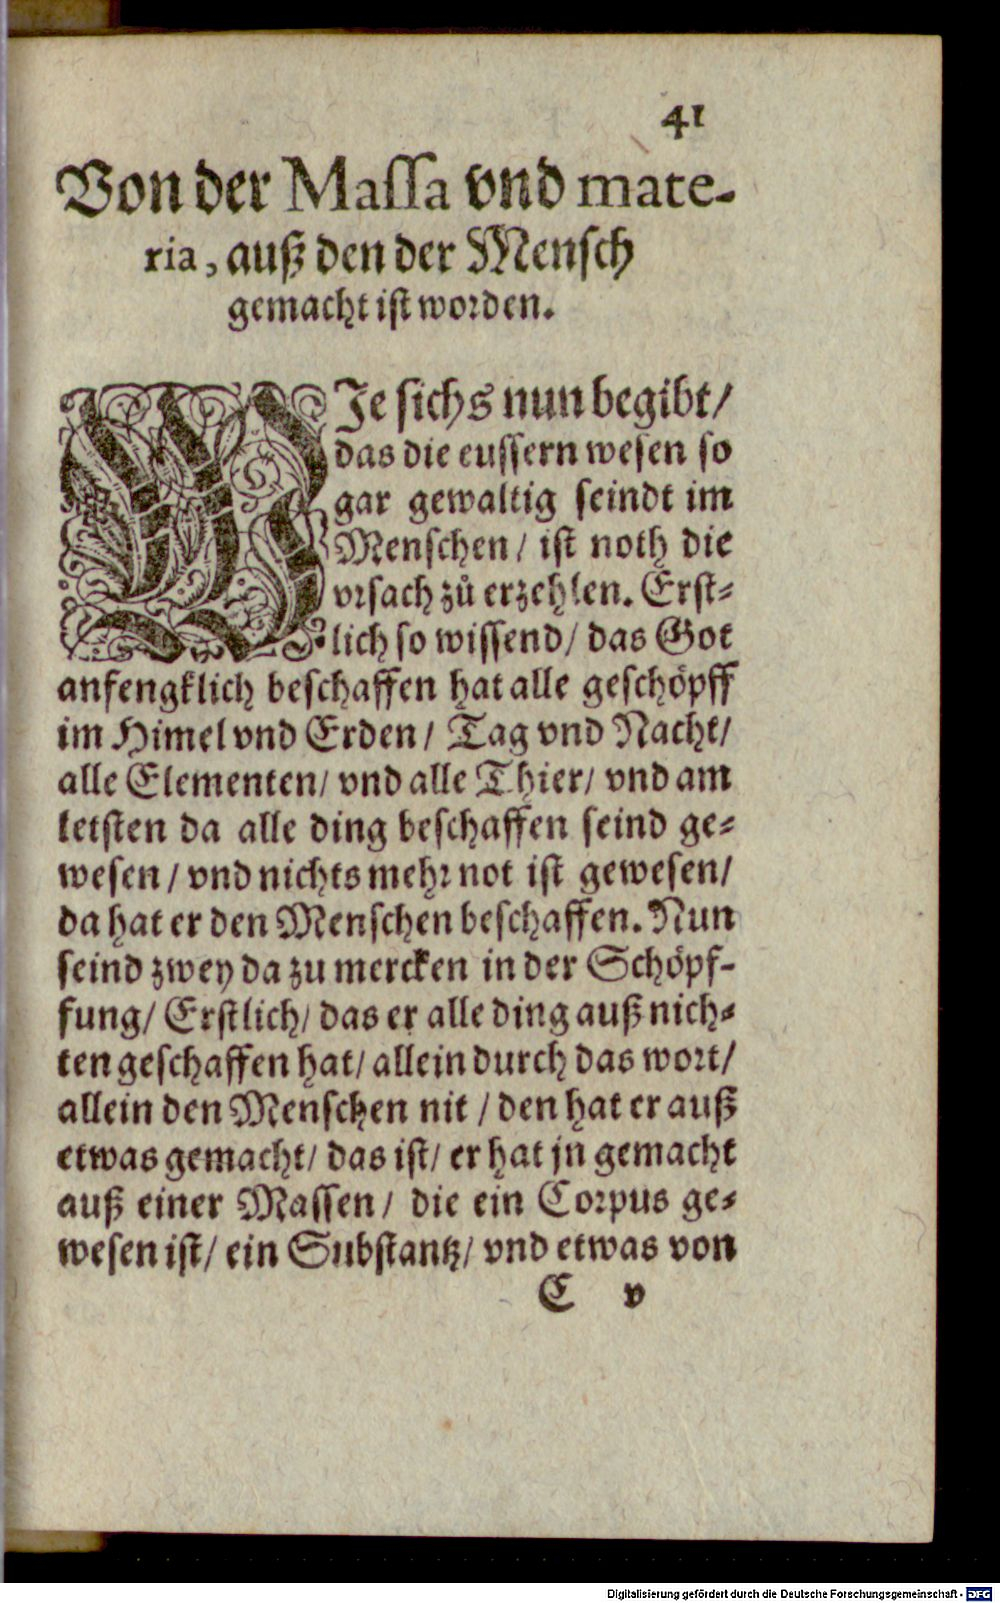 41
Von der Massa vnd mate-
ria, auß den der Mensch
gemacht ist worden.
WJe sichs nun begibt/
das die eussern wesen so
gar gewaltig seindt im
Menschen/ ist noth die
vrsach zů erzehlen. Erst-
lich so wissend/ das Got
anfengklich beschaffen hat alle geschöpff
im Himel vnd Erden/ Tag vnd Nacht/
alle Elementen/ vnd alle Thier/ vnd am
letsten da alle ding beschaffen seind ge-
wesen/ vnd nichts mehr not ist gewesen/
da hat er den Menschen beschaffen. Nun
seind zwey da zu mercken in der Schöpf-
fung/ Erstlich/ das er alle ding auß nich-
ten geschaffen hat/ allein durch das wort/
allein den Menschen nit / den hat er auß
etwas gemacht/ das ist/ er hat jn gemacht
auß einer Massen/ die ein Corpus ge-
wesen ist/ ein Substantz/ vnd etwas von
C v
Digitalisierung gefördert durch die Deutsche Forschungsgemeinschaft - DFG